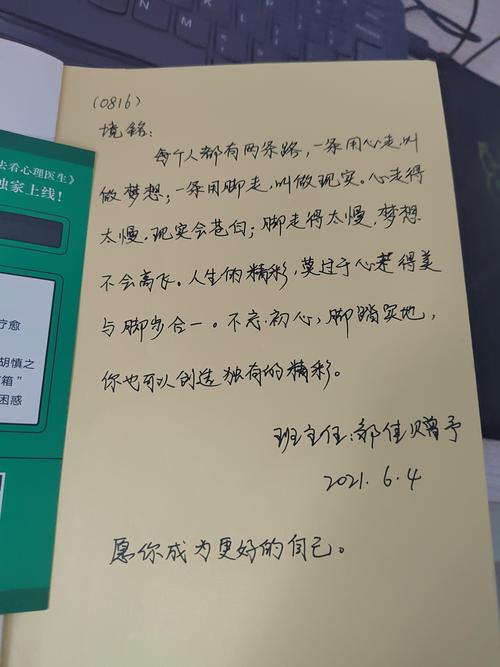 (0816)
境铭:
每个人都有两条路,一条用心走,叫
做梦想;一条用脚走,叫做现实。心走得
太慢,现实会苍白;脚走得太慢,梦想
不会高飞。人生的精彩,莫过于心走得美
与脚步合一。不忘初心,脚踏实地,
你也可以创造独有的精彩。
班主任:郭佳赠予
2021.6.4
愿你成为更好的自己。
去看心理医生》
独家上线!
疗愈
胡慎之
箱”
困惑